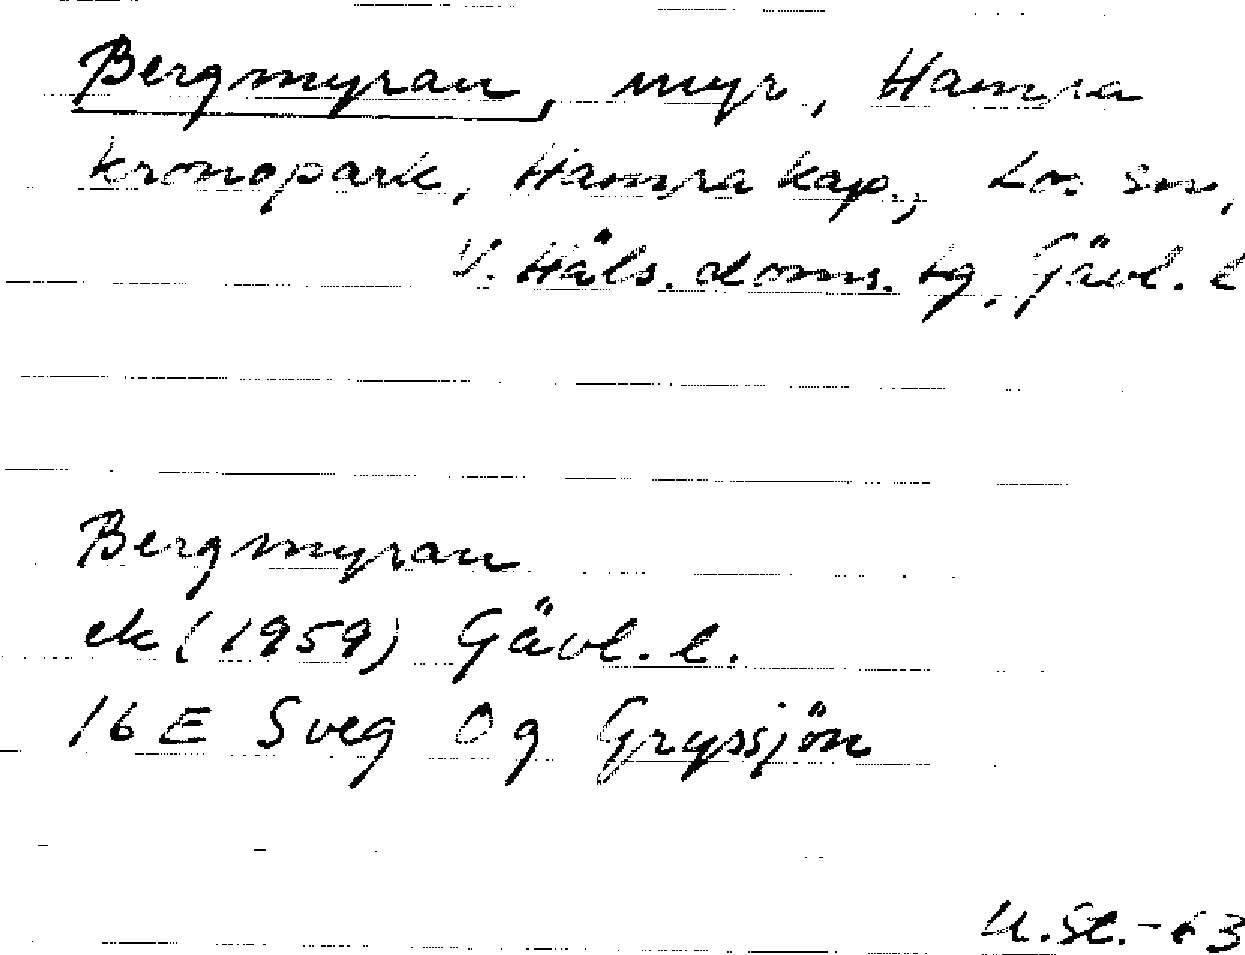 Bergmyran, myr, Hamra
kronopark, Hamra kap., Los sn,
V. Häls. doms. tg, Gävl. l
Bergmyran
ek (1959) Gävl. l.
16 E Sveg Og Gryssjön
U.Sl.-63